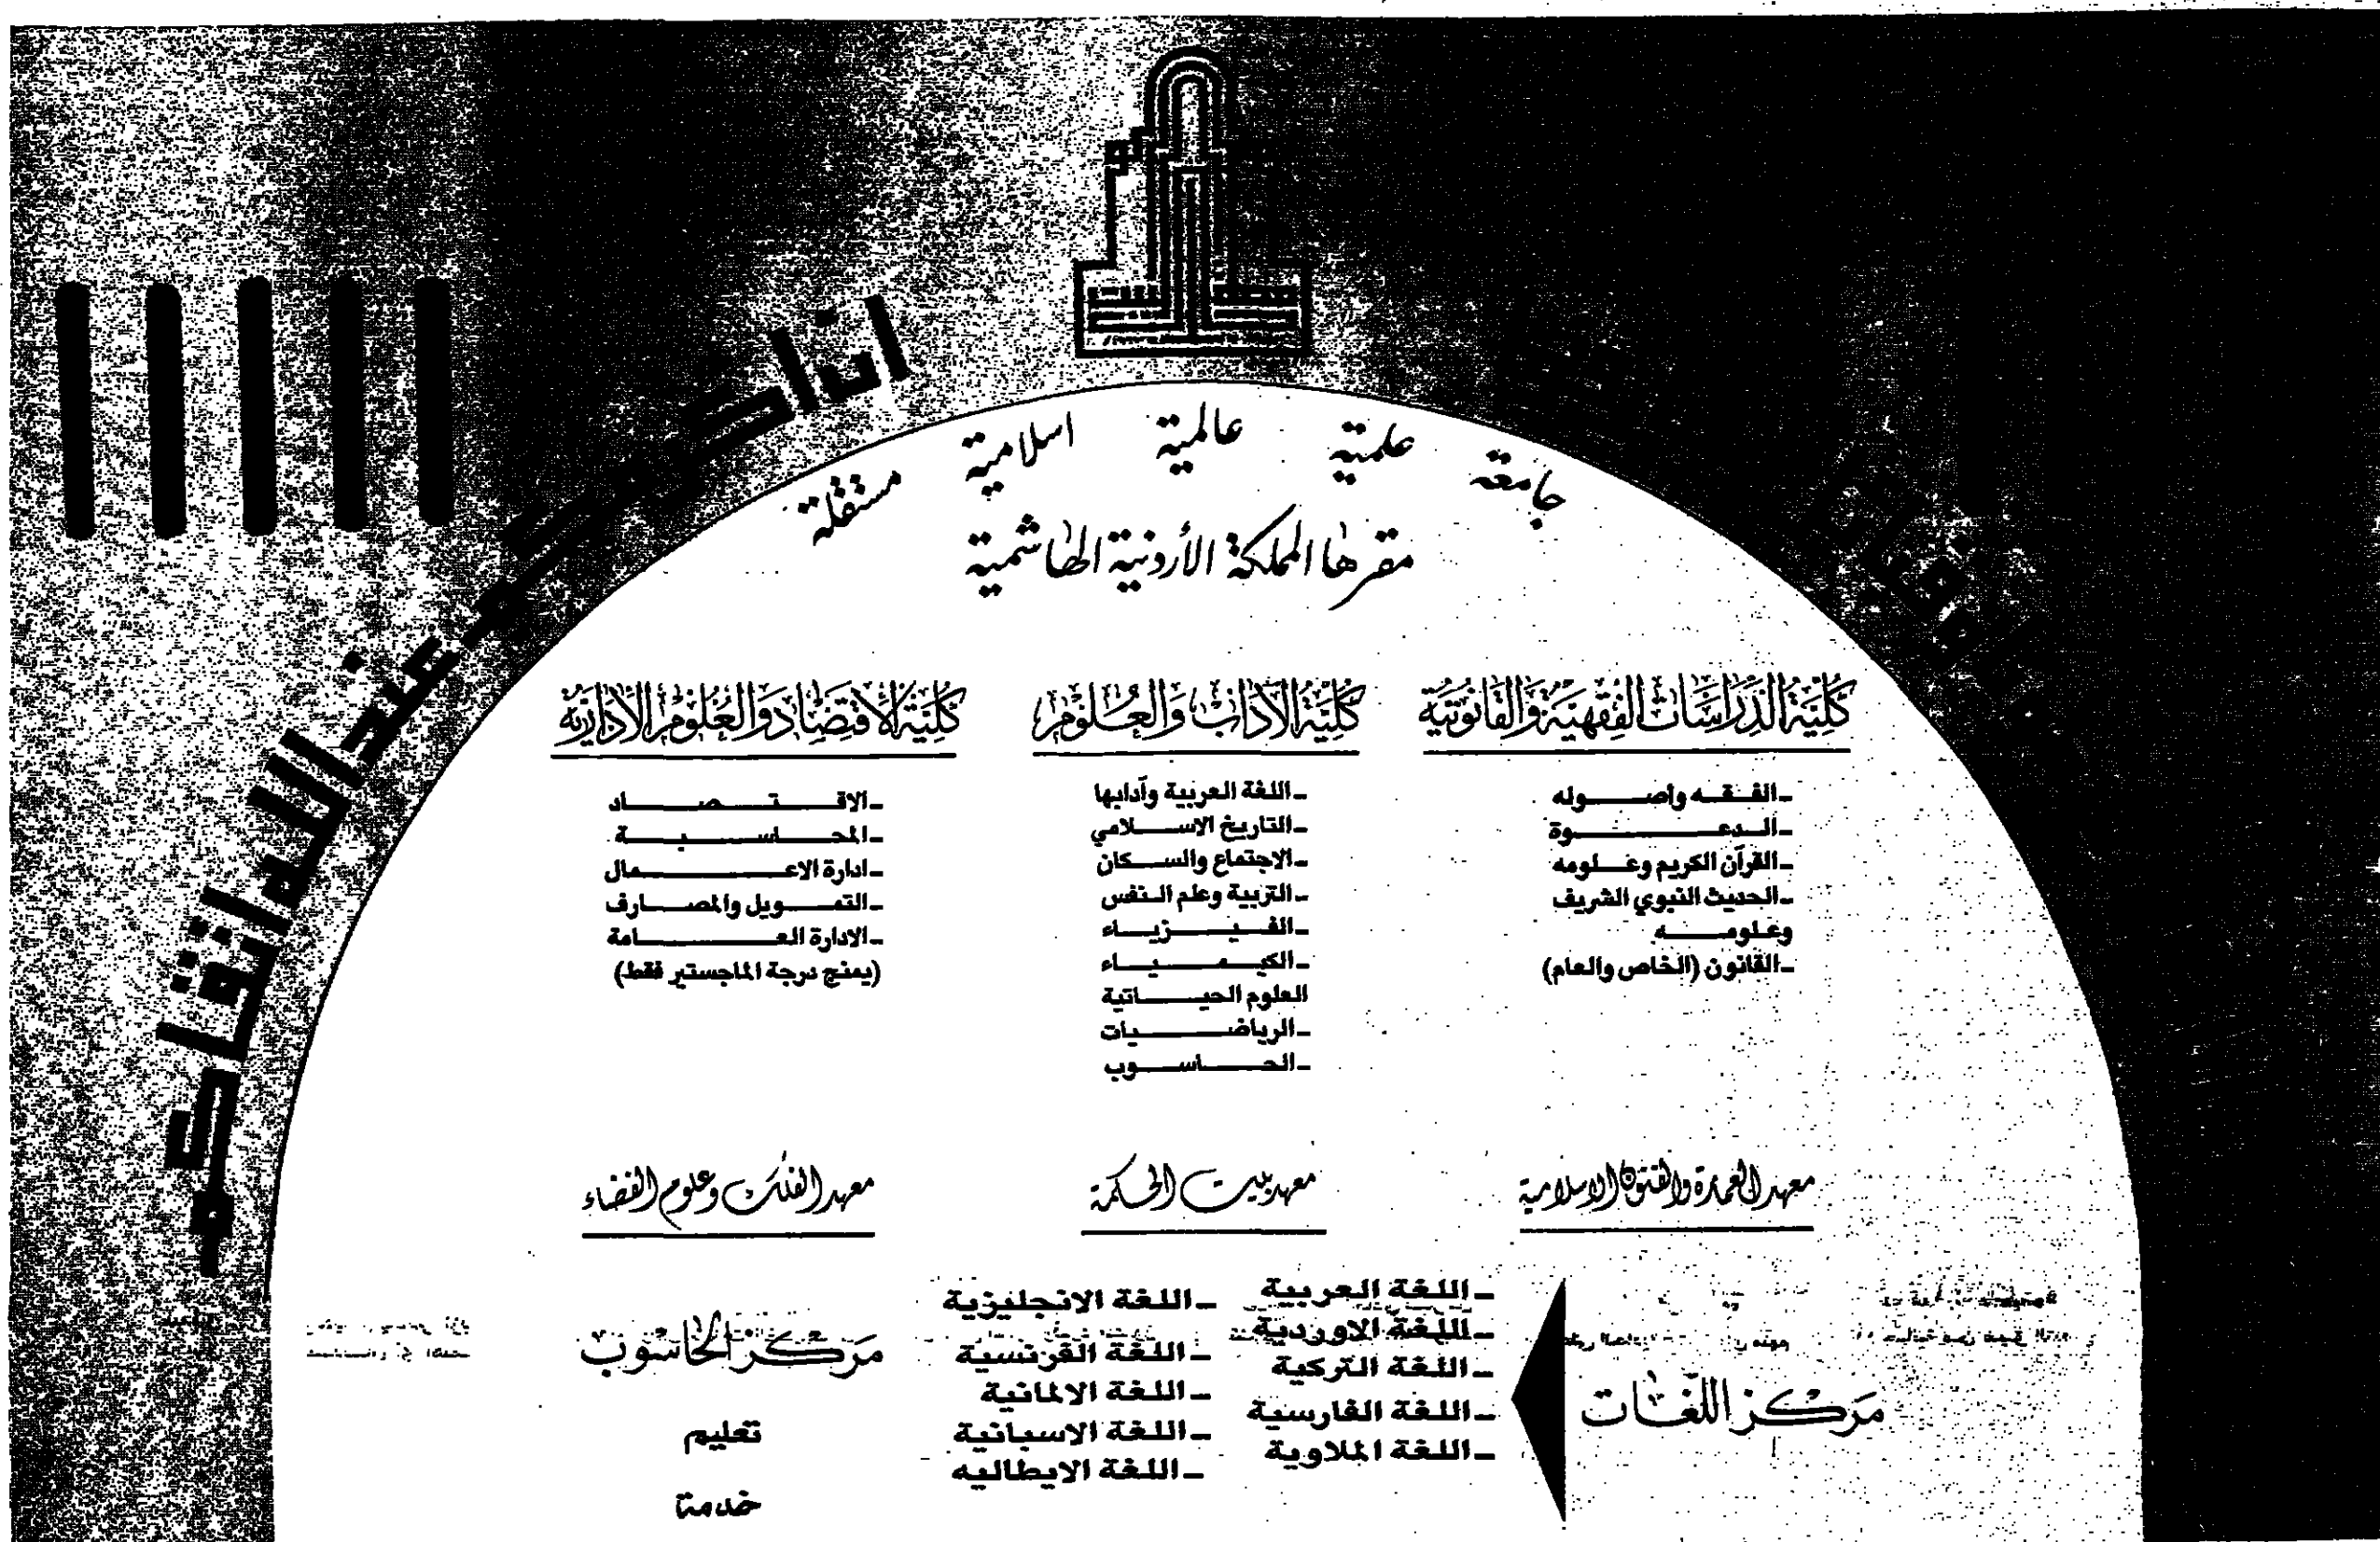 ان اكرمكم عند الله اتقاكم
جامعة علمية عالمية اسلامية مستقلة
مقرها المملكة الأردنية الهاشمية
كلية الدراسات الفقهية والقانونية
ـ الفقه واصوله
ـ الدعوة
ـ القرآن الكريم وعلومه
ـ الحديث النبوي الشريف
وعلومه
ـ القانون (الخاص والعام)
كلية الآداب والعلوم
ـ اللغة العربية وآدابها
ـ التاريخ الاسلامي
ـ الاجتماع والسكان
ـ التربية وعلم النفس
ـ الفيزياء
ـ الكيمياء
العلوم الحياتية
ـ الرياضيات
ـ الحاسوب
كلية الاقتصاد والعلوم الادارية
ـ الاقتصاد
ـ المحاسبة
ـ ادارة الاعمال
ـ التمويل والمصارف
ـ الادارة العامة
(يمنح درجة الماجستير فقط)
معهد العمارة والفنون الاسلامية
معهد بيت الحكمة
معهد الفلك وعلوم الفضاء
مركز اللغات
ـ اللغة العربية
ـ اللغة الاوردية
ـ اللغة التركية
ـ اللغة الفارسية
ـ اللغة الملاوية
ـ اللغة الانجليزية
ـ اللغة الفرنسية
ـ اللغة الالمانية
ـ اللغة الاسبانية
ـ اللغة الايطاليه
مركز الحاسوب
تعليم
خدمة